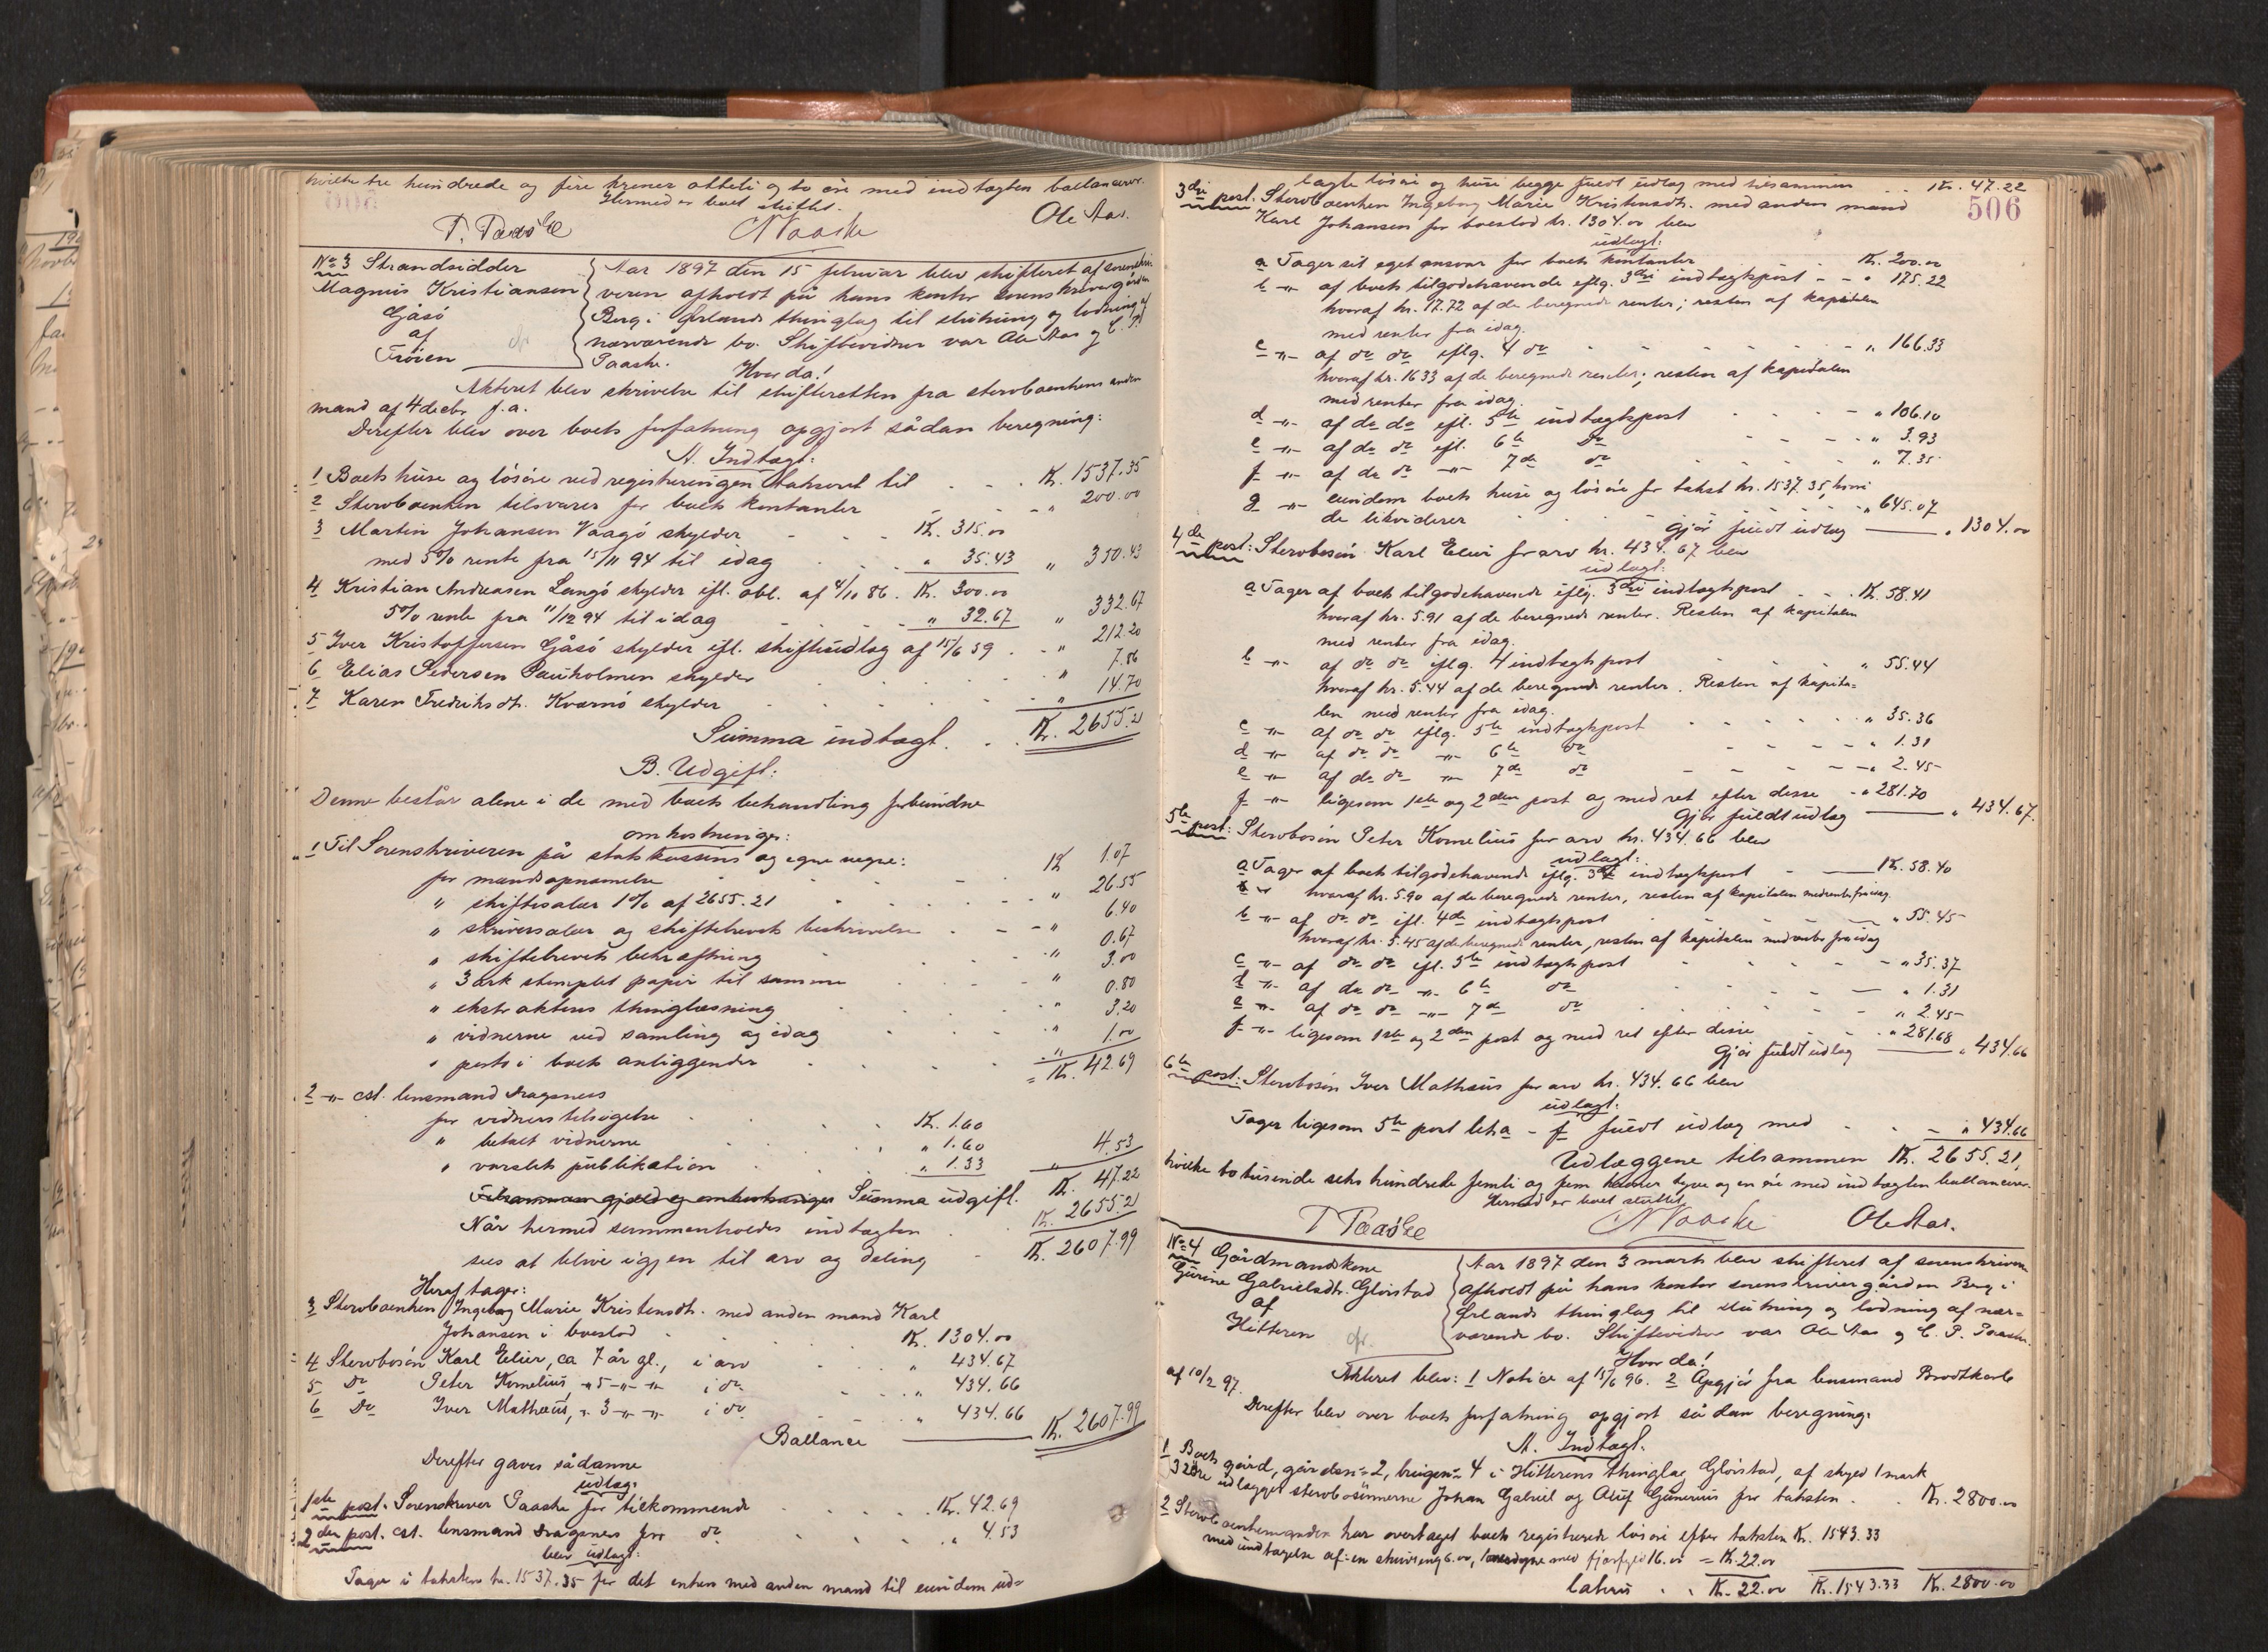 hvilke tre hundrede og fire kroner otteti og to øre med indtægten ballancerer.
Hermed er boet sluttet.
P. Paaske NPaaske Ole Aas.
No 3 Strandsidder
Magnus Kristiansen
Gåsø
af
Frøien
Aar 1897 den 15 februar blev skifteret af sorenskri-
veren afholdt på hans kontor sorenskrivergården
Berg i Ørlands thinglag til slutning og lodning af
nærværende bo. Skiftevidner var Ole Aas og C. P.
Paaske. Hvor da!
Akteret blev skrivelse til skifteretten fra sterboenkens anden
mand af 4 decbr f. a.
Derefter blev over boets forfatning opgjort sådan beregning:
A. Indtægt:
1 Boets huse og løsøre ved registreringen taxeret til Kr. 1537.35
2 Sterboenken tilsvarer for boets kontanter " 200.00
3 Martin Johansen Vaagø skylder Kr. 315.00
med 5% rente fra 15/11 94 til idag " 35.43 " 350.43
4 Kristian Andreasen Langø skylder ifl. obl. af 4/10 86. Kr. 300.00
5% rente fra 11/12 94 til idag " 32.67 " 332.67
5 Iver Kristoffersen Gåsø skylder ifl. skifteudlæg af 15/6 59 " 212.20
6 Elias Pedersen Pauholmen skylder " 7.86
7 Karen Fredriksdt. Kværnø skylder " 14.70
Summa indtægt. Kr. 2655.21
B. Udgift:
Denne består alene i de med boets behandling forbundne
omkostninger:
1 Til Sorenskriveren på statskassens og egne vegne:
for mandsopnævnelse Kr 1.07
" skiftesalær 1% af 2655.21 " 26.55
" skriversalær og skiftebrevets beskrivelse " 6.40
" skiftebrevets bekræftning " 0.67
" 3 ark stemplet papir til samme " 3.00
" ekstraktens thinglæsning " 0.80
" vidnerne ved samling og idag " 3.20
" porto i boets anliggender " 1.00
= Kr. 42.69
2 -"- cst. lensmand Dragsnes
for vidners tilsigelse Kr. 1.60
" betalt vidnerne " 1.60
" varslets publikation " 1.33 " 4.53
Tilsammen gjæld og omkostninger Summa udgift. Kr. 47.22
Når hermed sammenholdes indtægten Kr. 2655.21
sees at blive igjen til arv og deling Kr. 2607.99
Heraf tager:
3 Sterboenken Ingeborg Marie Kristensdt. med anden mand Karl
Johansen i boeslod Kr. 1304.00
4 Sterbosøn Karl Elier, ca 7 år gl., i arv " 434.67
5 Do Peter Kornelius, " 5 -"- -"- i do " 434.66
6 Do Iver Mathæus, " 3 -"- -"- i do " 434.66 Kr. 2607.99
Ballance
Derefter gaves sådanne
udlæg:
1ste post. Sorenskriver Paaske for tilkommende Kr. 42.69
2den post. cst. lensmand Dragsnes for do " 4.53
blev udlagt:
Tager i taksten kr. 1537.35 for det enken med anden mand til eiendom ud-
506
lagte løsøre og huse begge fuldt udlæg med tilsammen Kr. 47.22
3die post. Sterboenken Ingeborg Marie Kristensdt. med anden mand
Karl Johansen for boeslod kr. 1304.00 blev
udlagt:
a Tager sit eget ansvar for boets kontanter Kr. 200.00
b -"- af boets tilgodehavende eflg. 3die indtægtspost " 175.22
hvoraf kr. 17.72 af de beregnede renter; resten af kapitalen
med renter fra idag.
c -"- af do do eflg. 4 do " 166.33
hvoraf kr. 16 33 af de beregnede renter; resten af kapitalen
med renter fra idag.
d -"- af do do efl. 5te indtægtspost " 106.10
e -"- af do do efl. 6te do " 3.93
f -"- af do do -"- 7de do " 7.35
g -"- eiendom boets huse og løsøre for takst kr. 1537.35, hvori
de likviderer " 645.07
Gjør fuldt udlæg " 1304.00
4de post: Sterbosøn Karl Elier for arv kr. 434.67 blev
udlagt:
a Tager af boets tilgodehavende eflg. 3die indtægtspost Kr. 58.41
hvoraf kr. 5.91 af de beregnede renter. Resten af kapitalen
med renter fra idag.
b -"- af do do eflg. 4 indtægtspost " 55.44
hvoraf kr. 5.44 af de beregnede renter. Resten af kapita-
len med renter fra idag.
c -"- af do do eflg. 5te indtægtspost " 35.36
d -"- af do do -"- 6te do " 1.31
e -"- af do do -"- 7de do " 2.45
f -"- ligesom 1ste og 2den post og med ret efter disse " 281.70
Gjør fuldt udlæg " 434.67.
5te post: Sterbosøn Peter Kornelius for arv kr. 434.66 blev
udlagt:
a Tager af boets tilgodehavende eflg. 3die indtægtspost Kr. 58.40
hvoraf kr. 5.90 af de beregnede renter, resten af kapitalen med rente fra idag.
b -"- af do do ifl. 4de indtægtspost " 55.45
hvoraf kr. 5.45 af de beregnede renter, resten af kapitalen med renter fra idag
c -"- af do do efl. 5te indtægtspost " 35.37
d -"- af do do -"- 6te do " 1.31
e -"- af do do -"- 7de do " 2.45
f -"- ligesom 1ste og 2den post og med ret efter disse " 281.68
Gjør fuldt udlæg " 434.66
6te post: Sterbosøn Iver Mathæus for arv kr. 434.66 blev
udlagt:
Tager ligesom 5te post litr a - f fuldt udlæg med " 434.66
Udlæggene tilsammen Kr. 2655.21,
hvilke to tusinde seks hundrede femti og fem kroner tyve og en øre med indtægten ballancerer.
Hermed er boet sluttet.
P Paaske NPaaske Ole Aas.
No 4 Gårdmandskone
Gurine Gabrielsdt. Glørstad
af
Hitteren
Aar 1897 den 3 marts blev skifteret af sorenskriveren
afholdt på hans kontor sorenskrivergården Berg i
Ørlands thinglag til slutning og lodning af nær-
værende bo. Skiftevidner var Ole Aas og C. P. Paaske.
Hvor da!
Akteret blev: 1 Notice af 15/6 96. 2 Opgjør fra lensmand Brodtkorb
af 10/2 97.
Derefter blev over boets forfatning opgjort sådan beregning:
A. Indtægt:
1 Boets gård, gårdsn: 2, brugsn: 4 i Hitterens thinglag Glørstad, af skyld 1 mark
32 øre udlægges sterbosønnerne Johan Gabriel og Oluf Gunerius for taksten Kr. 2800.00
2 Sterboenkemanden har overtaget boets registrerede løsøre efter taksten Kr. 1543.33
med undtagelse af: en 6.00, 1 med 16.00 = Kr. 22.00
latus Kr. 22.00 Kr. 1543.33 Kr. 2800.00